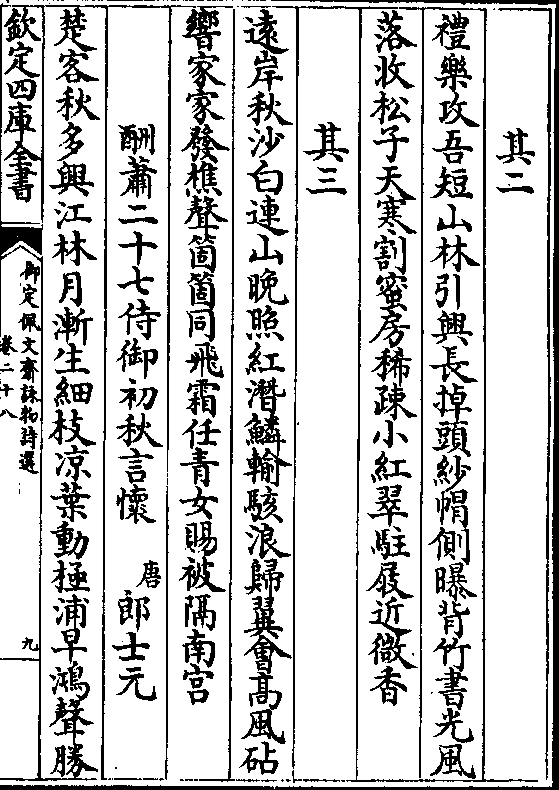 其二
禮樂攻吾短山林引興長掉頭紗帽側曝背竹書光風
落收松子天寒割蜜房稀疎小紅翠駐屐近微香
其三
遠岸秋沙白連山晚照紅潛鱗輸駭浪歸翼會髙風砧
響家家發樵聲箇箇同飛霜任青女賜被隔南宫
酬蕭二十七侍御初秋言懷 唐 郎士元
楚客秋多興江林月漸生細枝凉葉動極浦早鴻聲勝
欽定四庫全書
御定佩文齋詠物詩選
卷二十八
九